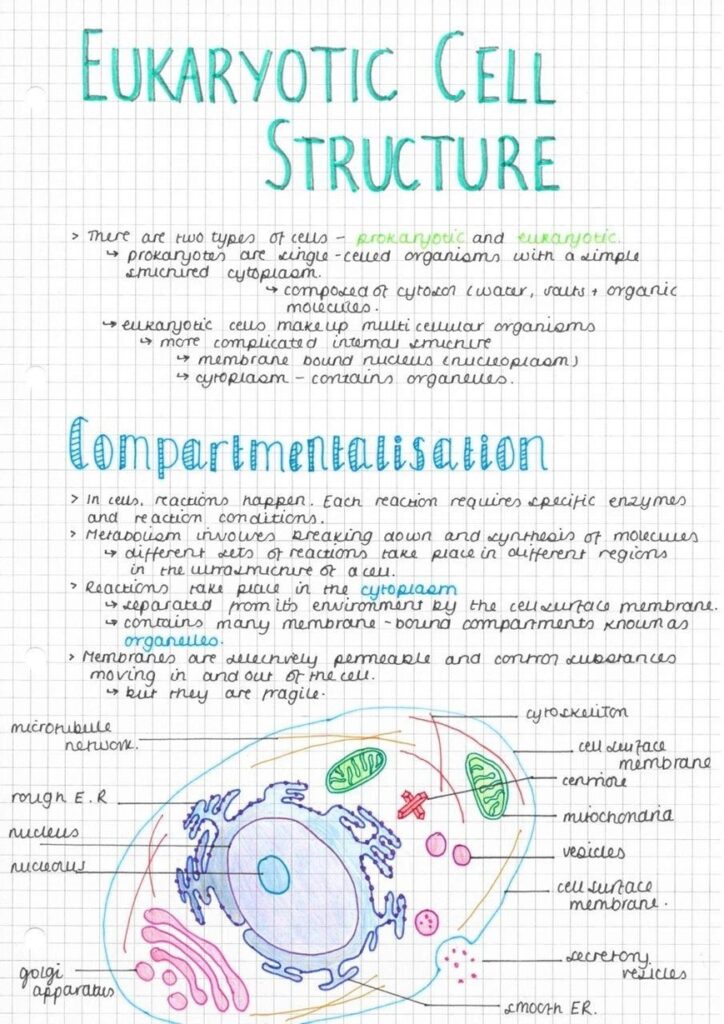 EUKARYOTIC CELL
STRUCTURE
> There are two types of cells - prokaryotic and eukaryotic.
↳ prokaryotes are single-celled organisms with a simple
structured cytoplasm.
↳ composed of cytosol (water, salts + organic
molecules.
↳ eukaryotic cells make up multicellular organisms
↳ more complicated internal structure
↳ membrane bound nucleus (nucleoplasm)
↳ cytoplasm - contains organelles.
Compartmentalisation
> In cells, reactions happen. Each reaction requires specific enzymes
and reaction conditions.
> Metabolism involves breaking down and synthesis of molecules
↳ different sets of reactions take place in different regions
in the ultrastructure of a cell.
> Reactions take place in the cytoplasm
↳ separated from its environment by the cell surface membrane.
↳ contains many membrane-bound compartments known as
organelles.
> Membranes are selectively permeable and control substances
moving in and out of the cell.
↳ but they are fragile.
microtubule
network.
rough E.R
nucleus
nucleolus
golgi
apparatus
cytoskeleton
cell surface
membrane
centriole
mitochondria
vesicles
cell surface
membrane.
secretory
vesicles
smooth ER.